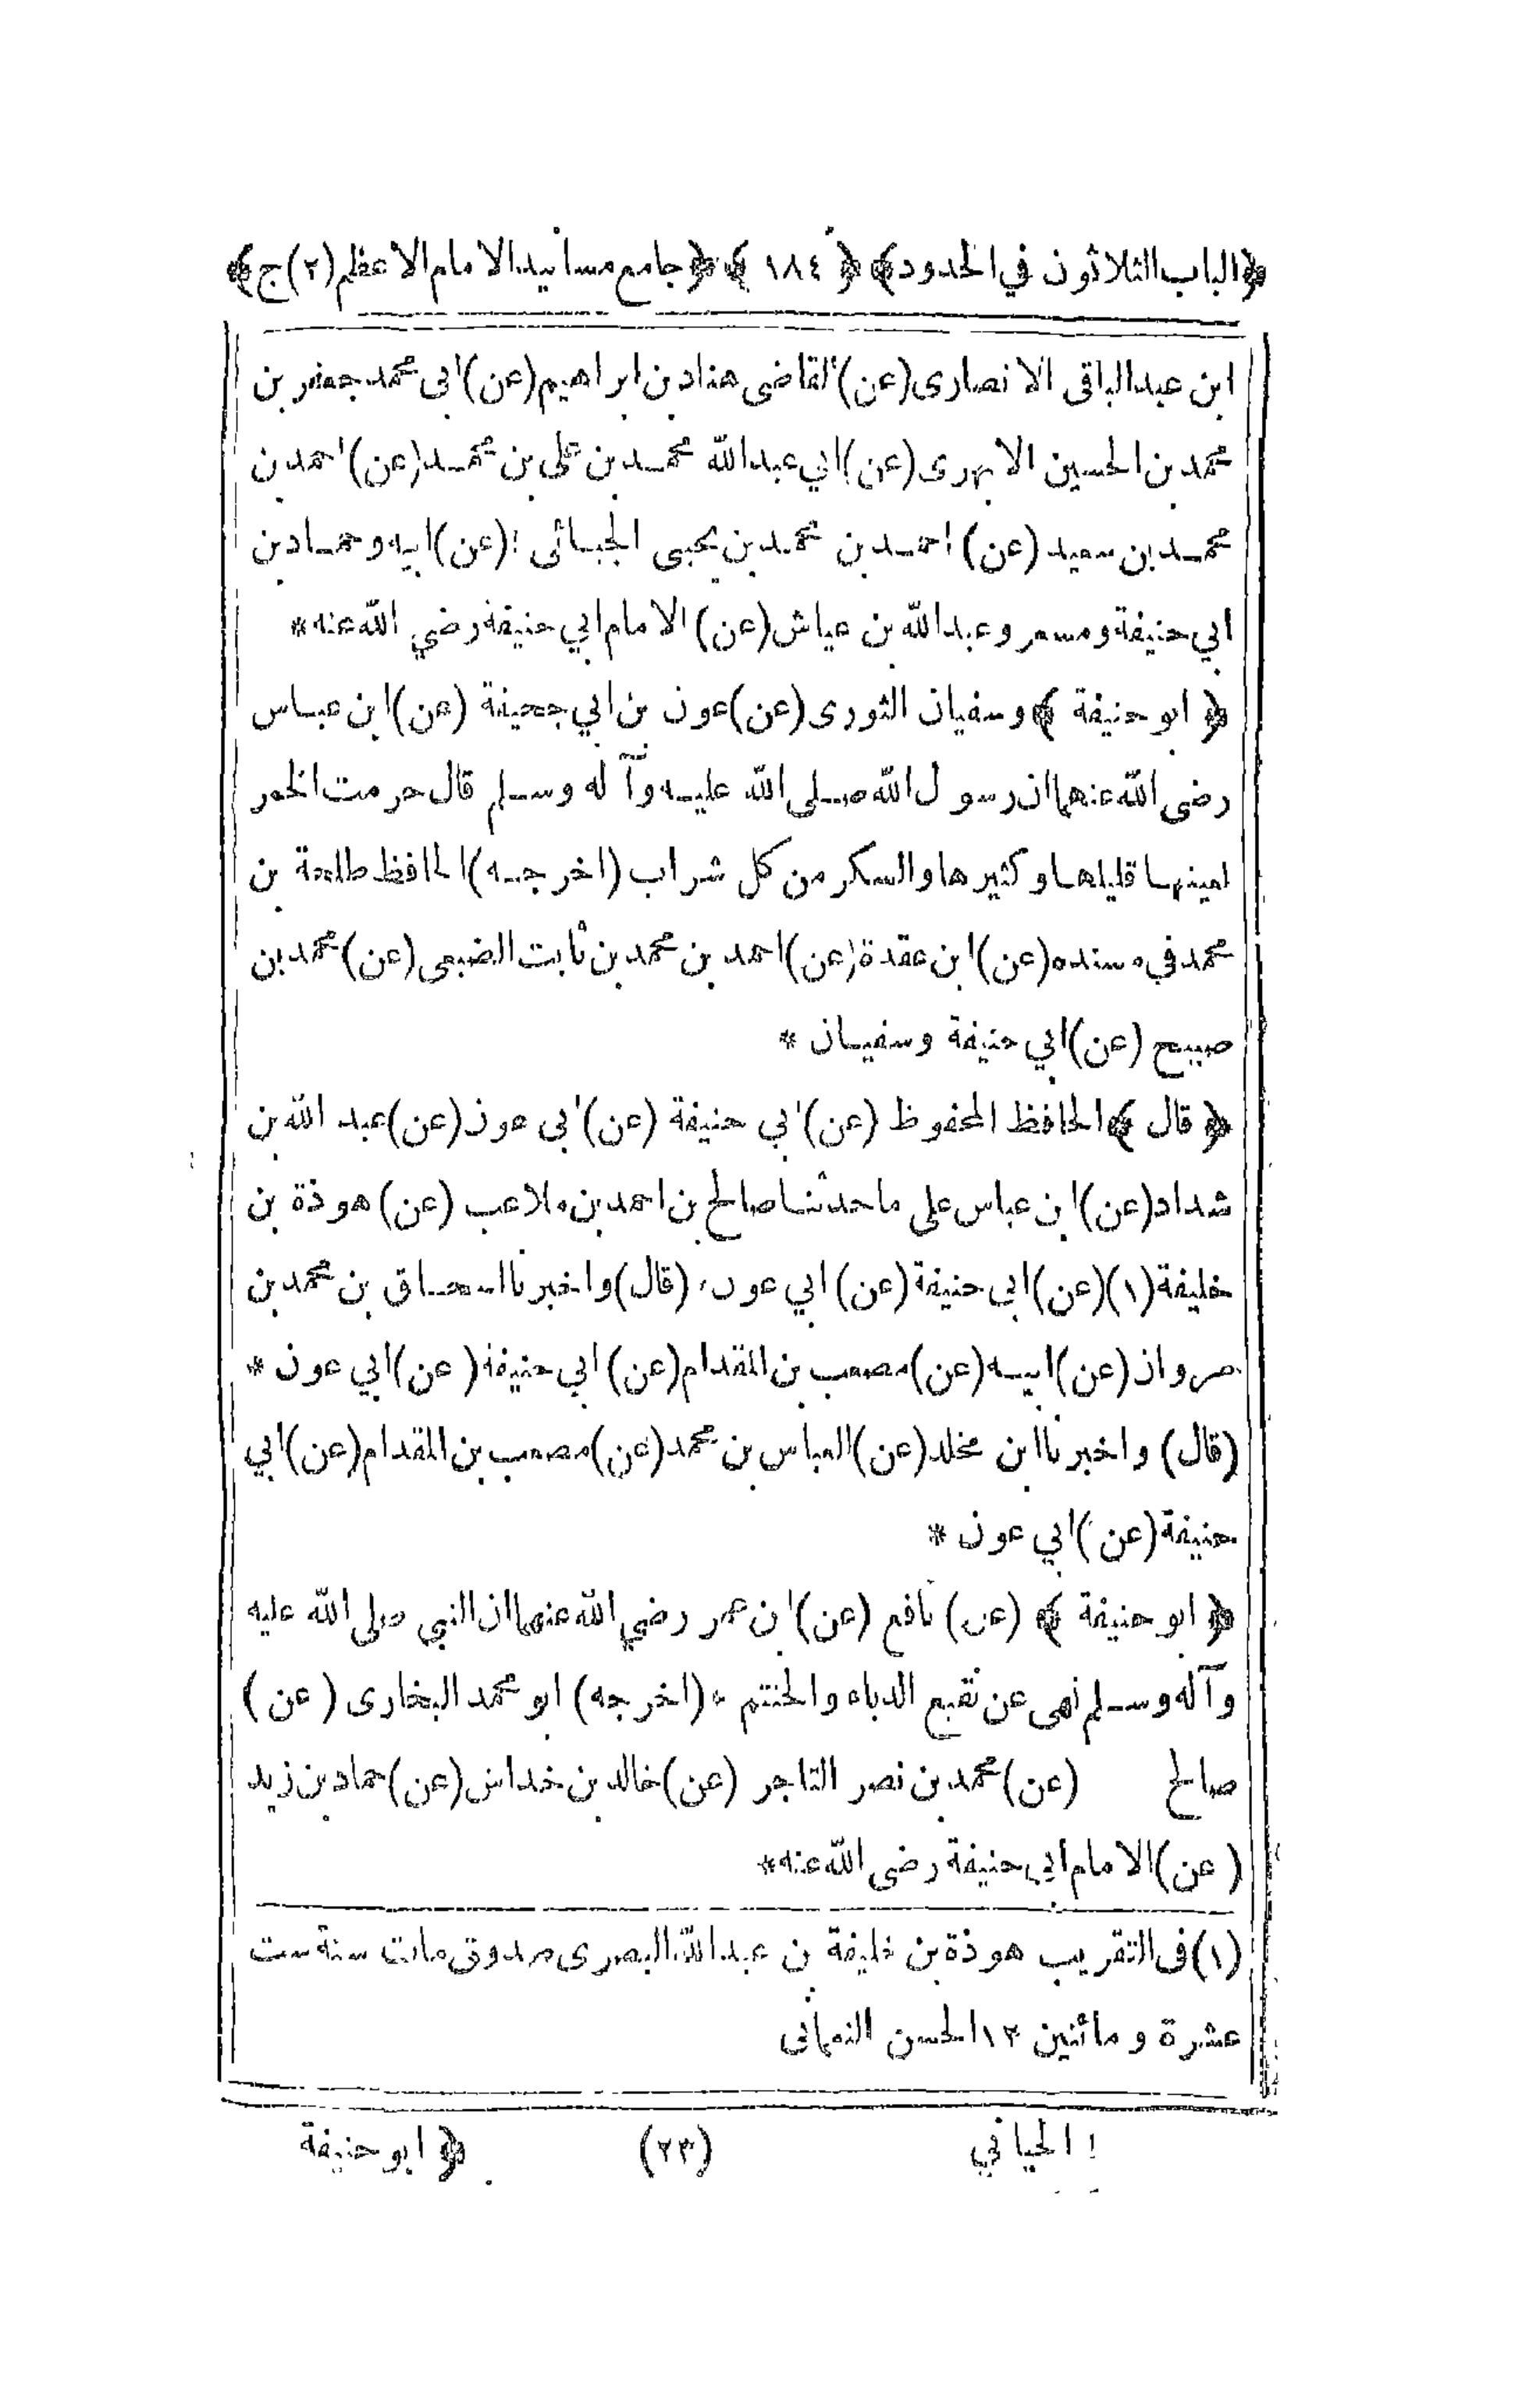 ﴿الباب الثلاثون في الحدود﴾ ﴿ ١٨٤ ﴾ ﴿جامع مسانيد الامام الاعظم (٢) ج﴾
ابن عبد الباقى الانصارى (عن) القاضى هناد بن ابراهيم (عن) ابى محمد جعفر بن
محمد بن الحسين الابهرى (عن) ابي عبد الله محمد بن على بن محمد (عن) احمد بن
محمد بن سعيد (عن) احمد بن محمد بن يحيى الجبائى ! (عن) ابيه وحماد بن
ابي حنيفة ومسعر وعبد الله بن عياش (عن) الامام ابي حنيفة رضي الله عنه *
﴿ ابو حنيفة ﴾ وسفيان الثورى (عن) عون بن ابي جحيفة (عن) ابن عباس
رضى الله عنهما ان رسول الله صلى الله عليه وآله وسلم قال حرمت الخمر
لعينها قليلها وكثيرها والسكر من كل شراب (اخرجه) الحافظ طلحة بن
محمد في مسنده (عن) ابن عقدة (عن) احمد بن محمد بن ثابت الضبعى (عن) محمد بن
صبيح (عن) ابي حنيفة وسفيان *
﴿ قال ﴾ الحافظ المحفوظ (عن) ابي حنيفة (عن) ابى عون (عن) عبد الله بن
شداد (عن) ابن عباس على ما حدثنا صالح بن احمد بن ملاعب (عن) هوذة بن
خليفة (١) (عن) ابى حنيفة (عن) ابي عون، (قال) واخبرنا اسحاق بن محمد بن
مروان (عن) ابيه (عن) مصعب بن المقدام (عن) ابي حنيفة (عن) ابي عون *
(قال) واخبرنا ابن مخلد (عن) العباس بن محمد (عن) مصعب بن المقدام (عن) ابي
حنيفة (عن) ابي عون *
﴿ ابو حنيفة ﴾ (عن) نافع (عن) ابن عمر رضي الله عنهما ان النبي صلى الله عليه
وآله وسلم نهى عن نقيع الدباء والحنتم * (اخرجه) ابو محمد البخارى (عن)
صالح (عن) محمد بن نصر التاجر (عن) خالد بن خداش (عن) حماد بن زيد
(عن) الامام ابي حنيفة رضى الله عنه *
(١) فى التقريب هوذة بن خليفة بن عبد الله البصرى صدوق مات سنة ست
عشرة ومائتين ١٢ الحسن النعمانى
! الحيافي (٢٣) ﴿ ابو حنيفة